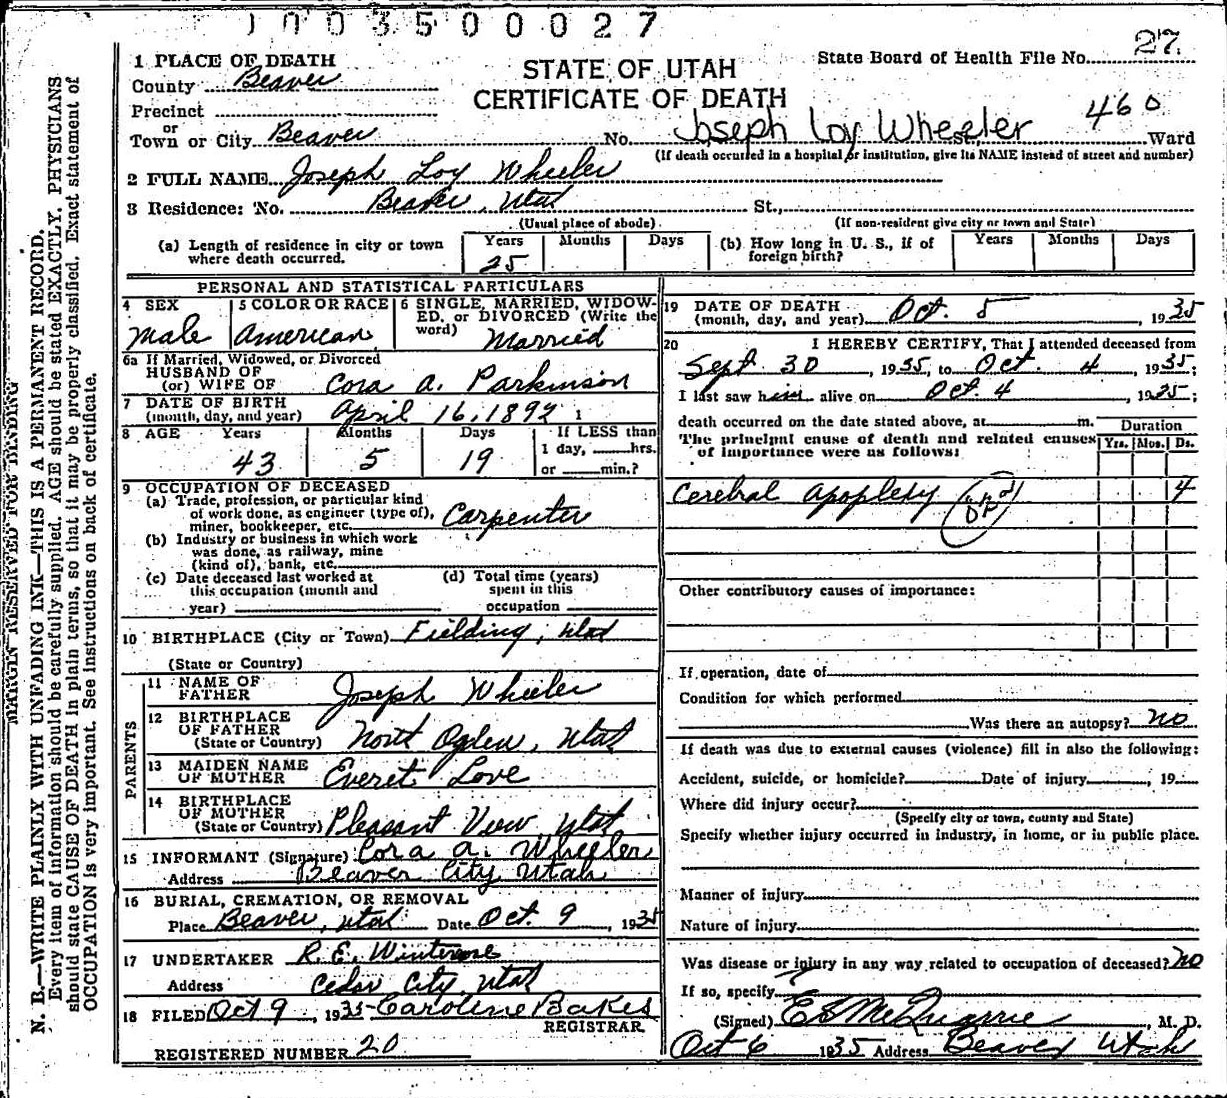 1003500027
27.
State Board of Health File No.
1 PLACE OF DEATH
County Beaver
STATE OF UTAH
CERTIFICATE OF DEATH
Precinct
or
Town or City Beaver No. Joseph Loy Wheeler St., 460 Ward
(If death occurred in a hospital or institution, give its NAME instead of street and number)
2 FULL NAME Joseph Loy Wheeler
3 Residence: No. Beaver, Utah St.,
(Usual place of abode) (If non-resident give city or town and State)
(a) Length of residence in city or town where death occurred. Years 25 Months Days
(b) How long in U. S., if of foreign birth? Years Months Days
PERSONAL AND STATISTICAL PARTICULARS
4 SEX Male
5 COLOR OR RACE American
6 SINGLE, MARRIED, WIDOWED, or DIVORCED (Write the word) Married
6a If Married, Widowed, or Divorced
HUSBAND OF
(or) WIFE OF Cora A. Parkinson
7 DATE OF BIRTH
(month, day, and year) April 16, 1892
8 AGE Years 43 Months 5 Days 19
If LESS than
1 day, hrs.
or min.?
9 OCCUPATION OF DECEASED
(a) Trade, profession, or particular kind
of work done, as engineer (type of),
miner, bookkeeper, etc. Carpenter
(b) Industry or business in which work
was done, as railway, mine
(kind of), bank, etc.
(c) Date deceased last worked at
this occupation (month and
year)
(d) Total time (years)
spent in this
occupation
10 BIRTHPLACE (City or Town) Fielding, Utah
(State or Country)
PARENTS
11 NAME OF
FATHER Joseph Wheeler
12 BIRTHPLACE
OF FATHER
(State or Country) North Ogden, Utah
13 MAIDEN NAME
OF MOTHER Everet Love
14 BIRTHPLACE
OF MOTHER
(State or Country) Pleasant View Utah
15 INFORMANT (Signature) Cora A. Wheeler
Address Beaver City Utah
16 BURIAL, CREMATION, OR REMOVAL
Place Beaver, Utah Date Oct. 9, 1935
17 UNDERTAKER R. E. Winterose
Address Cedar City, Utah
18 FILED Oct 9, 1935 Caroline Bakes
REGISTRAR
REGISTERED NUMBER 20
19 DATE OF DEATH
(month, day, and year) Oct. 5, 1935
20 I HEREBY CERTIFY, That I attended deceased from
Sept 30, 1935, to Oct. 4, 1935;
I last saw him alive on Oct. 4, 1935;
death occurred on the date stated above, at m.
The principal cause of death and related causes
of importance were as follows:
Duration
Yrs. Mos. Ds.
Cerebral apoplexy 4
Other contributory causes of importance:
If operation, date of
Condition for which performed
Was there an autopsy? no
If death was due to external causes (violence) fill in also the following:
Accident, suicide, or homicide? Date of injury , 19
Where did injury occur?
(Specify city or town, county and State)
Specify whether injury occurred in industry, in home, or in public place.
Manner of injury
Nature of injury
Was disease or injury in any way related to occupation of deceased? no
If so, specify
(Signed) McQuarrie, M. D.
Oct 6 1935 Address Beaver Utah
MARGIN RESERVED FOR BINDING
N. B.—WRITE PLAINLY WITH UNFADING INK—THIS IS A PERMANENT RECORD.
Every item of information should be carefully supplied. AGE should be stated EXACTLY. PHYSICIANS
should state CAUSE OF DEATH in plain terms, so that it may be properly classified. Exact statement of
OCCUPATION is very important. See instructions on back of certificate.